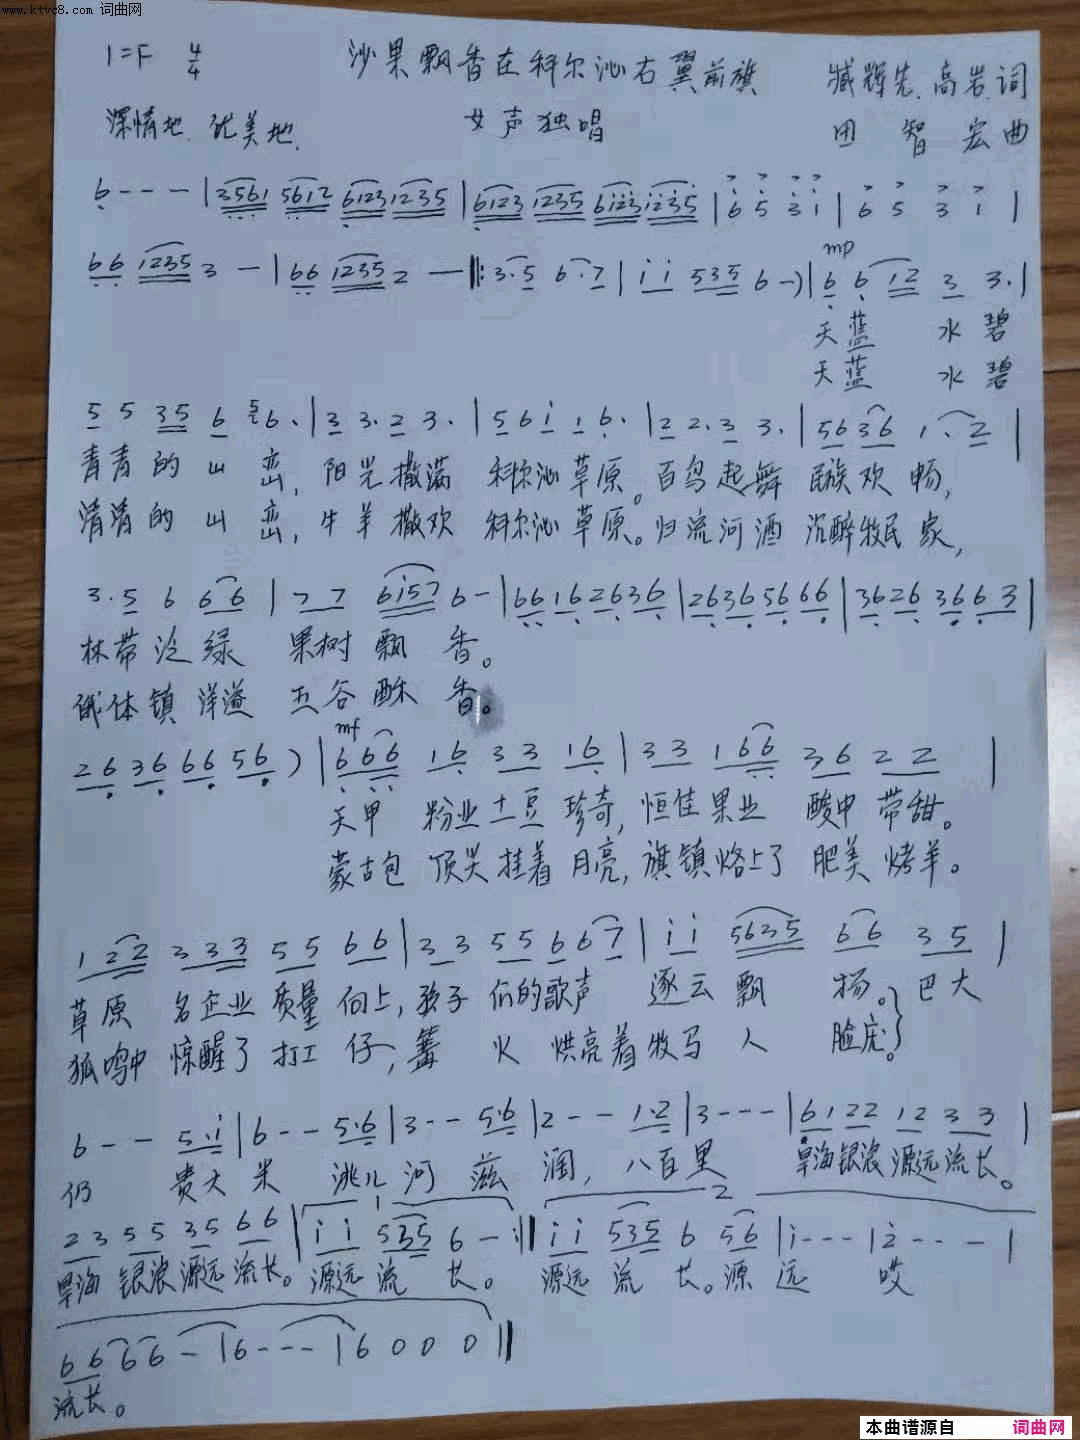 www.ktvc8.com 词曲网
1=F 4/4 沙果飘香在科尔沁右翼前旗 臧辉先、高岩词
深情地、优美地、 女声独唱 田智宏曲
6 - - - | 3561 5612 6123 1235 | 6123 1235 6123 1235 | 6 5 3 1 | 6 5 3 1 |
mp
66 1235 3 - | 66 1235 2 - ‖: 3·5 6·7 | i i 535 6 -) | 6 6 12 3 3· |
天蓝 水碧
天蓝 水碧
5 5 35 6 56· | 3 3·2 3· | 5 6 i 1 6· | 2 2·3 3· | 56 36 1·2 |
青青的山峦,阳光撒满 科尔沁草原。百鸟起舞 民族欢畅,
清清的山峦,牛羊撒欢 科尔沁草原。归流河酒 沉醉牧民家,
3·5 6 66 | 77 6i57 6 - | 66 16 26 36 | 26 36 56 66 | 36 26 36 63 |
林带泛绿 果树飘香。
俄体镇洋溢 五谷酥香。
mf
26 36 66 56 ) | 666 16 33 16 | 33 166 36 22 |
天甲 粉业土豆珍奇,恒佳果业 酸中带甜。
蒙古包 顶关挂着月亮,旗镇烙上了 肥美烤羊。
1 22 333 55 66 | 33 55 667 | i i 5635 66 35 |
草原 名企业 质量向上,孩子们的歌声 逐云飘扬。巴大
狐鸣中 惊醒了打工仔,篝火 烘亮着牧马人 脸庞。
6 - - 5·i | 6 - - 5·6 | 3 - - 5·6 | 2 - - 1·2 | 3 - - - | 6122 12 33 |
仍 贵大米 洮儿河滋润,八百里 旱海银浪源远流长。
1 2
23 55 35 66 | i i 535 6 - :‖ i i 535 6 56 | i - - - | 2 - - - |
旱海银浪源远流长。源远流长。 源远流长。源远 哎
66 66 - | 6 - - - | 6 0 0 0 ‖
流长。
本曲谱源自 词曲网